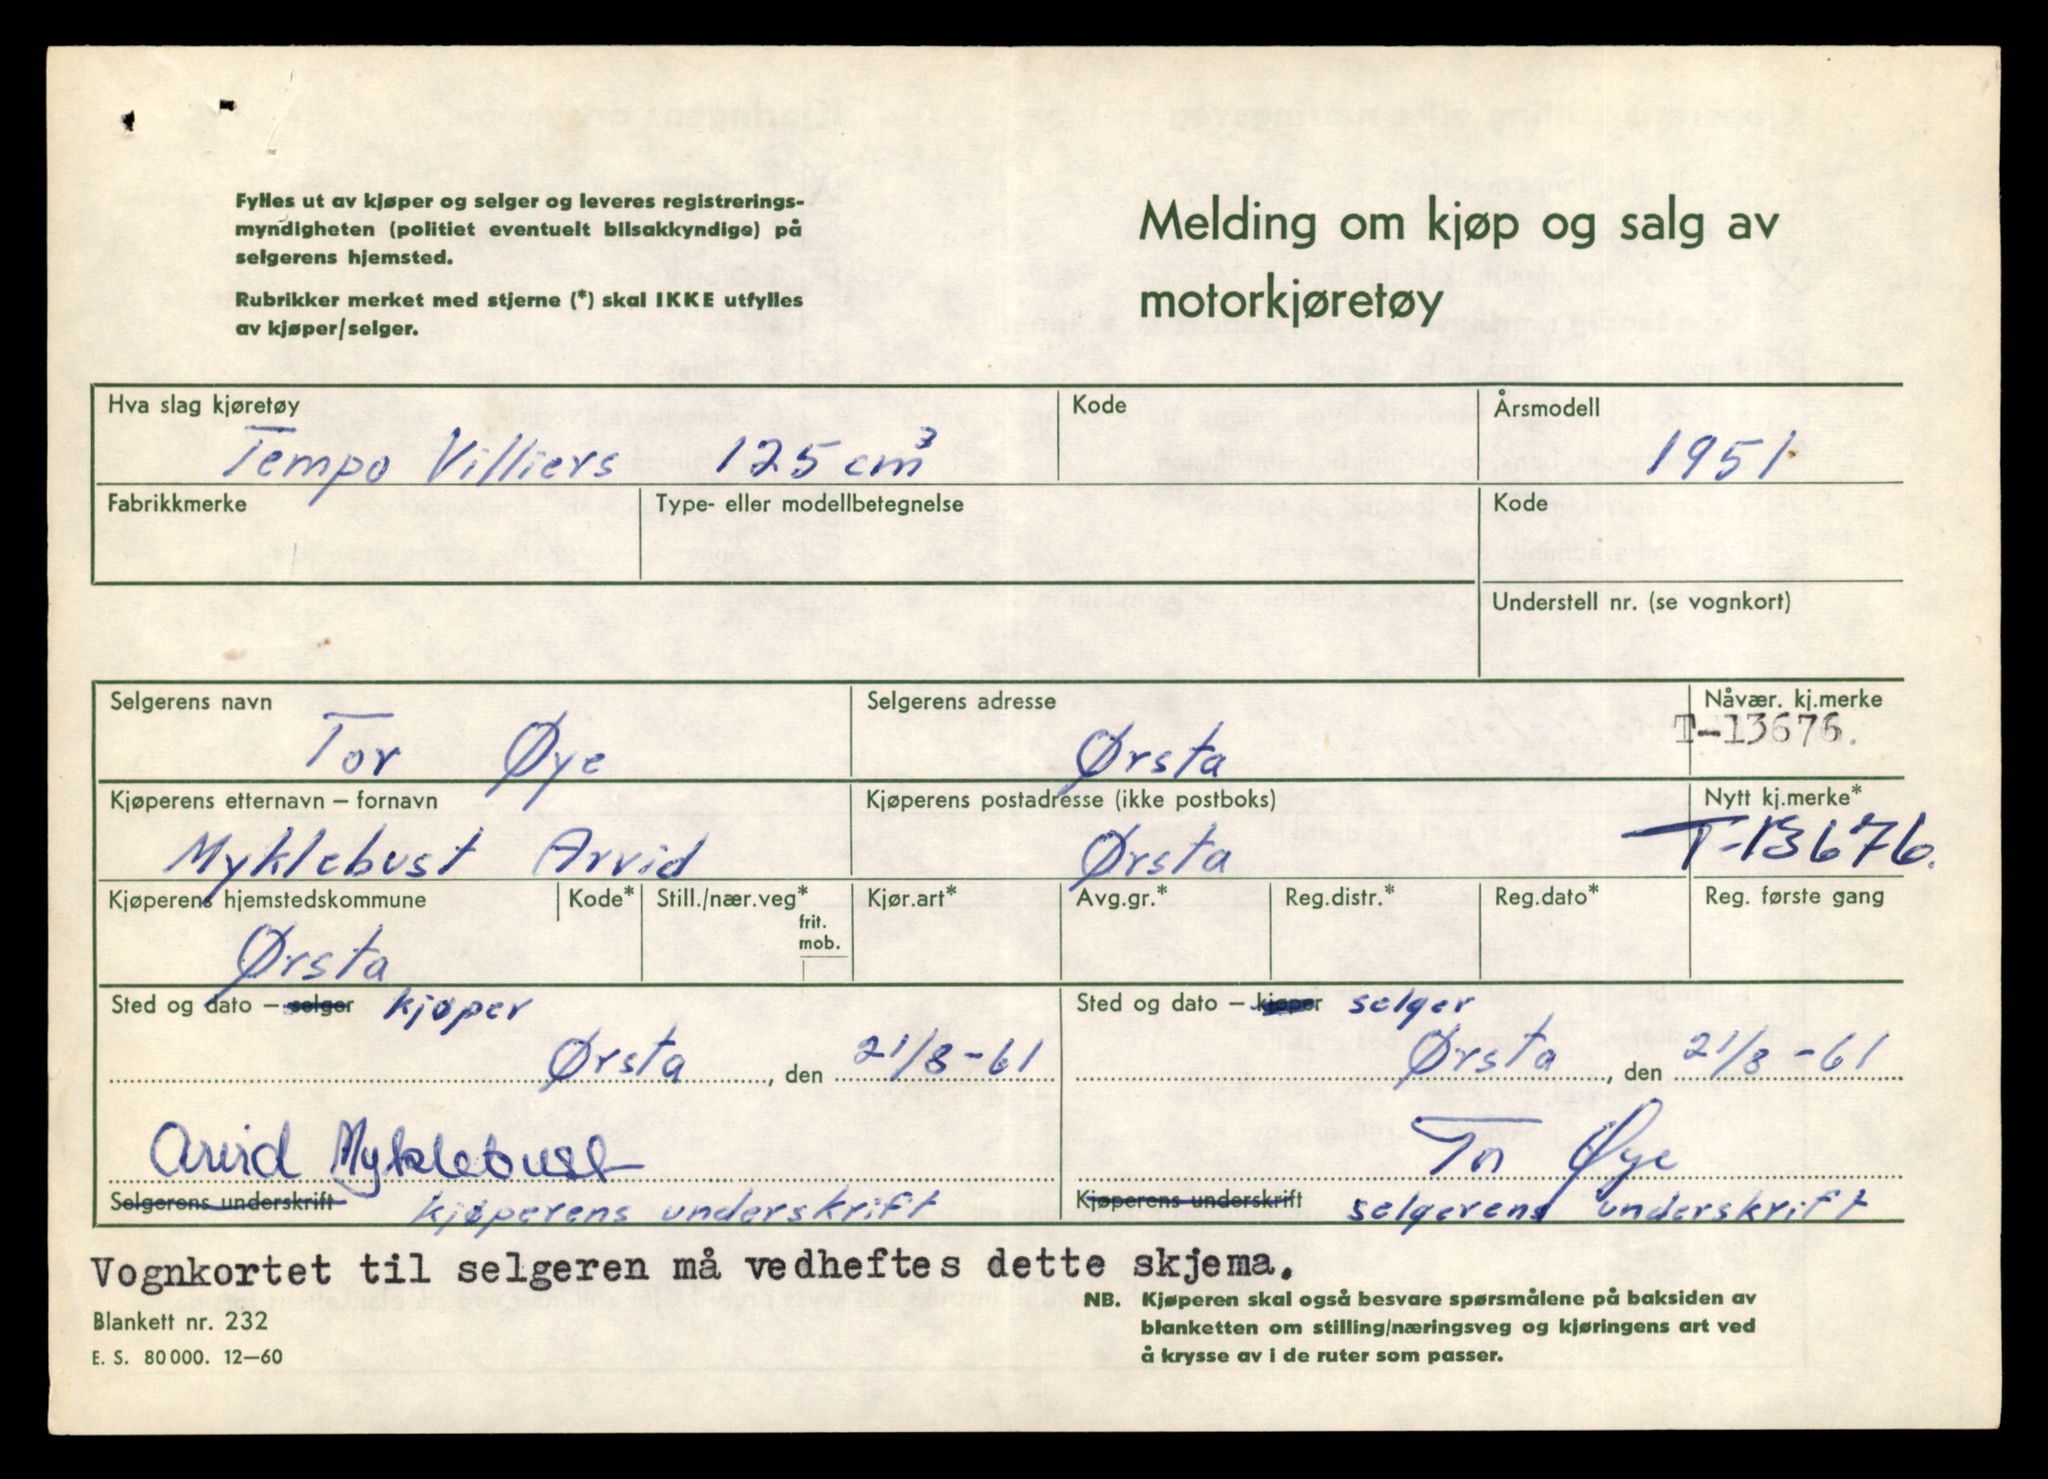 Fylles ut av kjøper og selger og leveres registrerings-
myndigheten (politiet eventuelt bilsakkyndige) på
selgerens hjemsted.
Rubrikker merket med stjerne (*) skal IKKE utfylles
av kjøper/selger.
Melding om kjøp og salg av
motorkjøretøy
Hva slag kjøretøy
Tempo Villiers 125 cm³
Kode
Årsmodell
1951
Fabrikkmerke
Type- eller modellbetegnelse
Kode
Understell nr. (se vognkort)
Selgerens navn
Tor Øye
Selgerens adresse
Ørsta
Nåvær. kj.merke
T-13676.
Kjøperens etternavn – fornavn
Myklebust Arvid
Kjøperens postadresse (ikke postboks)
Ørsta
Nytt kj.merke*
T-13676.
Kjøperens hjemstedskommune
Ørsta
Kode*
Still./nær.veg*
frit.
mob.
Kjør.art*
Avg.gr.*
Reg.distr.*
Reg.dato*
Reg. første gang
Sted og dato – selger kjøper
Ørsta, den 21/8-61
Arvid Myklebust
Selgerens underskrift kjøperens underskrift
Sted og dato – kjøper selger
Ørsta, den 21/8-61
Tor Øye
Kjøperens underskrift selgerens underskrift
Vognkortet til selgeren må vedheftes dette skjema.
Blankett nr. 232
E. S. 80000. 12–60
NB. Kjøperen skal også besvare spørsmålene på baksiden av
blanketten om stilling/næringsveg og kjøringens art ved
å krysse av i de ruter som passer.